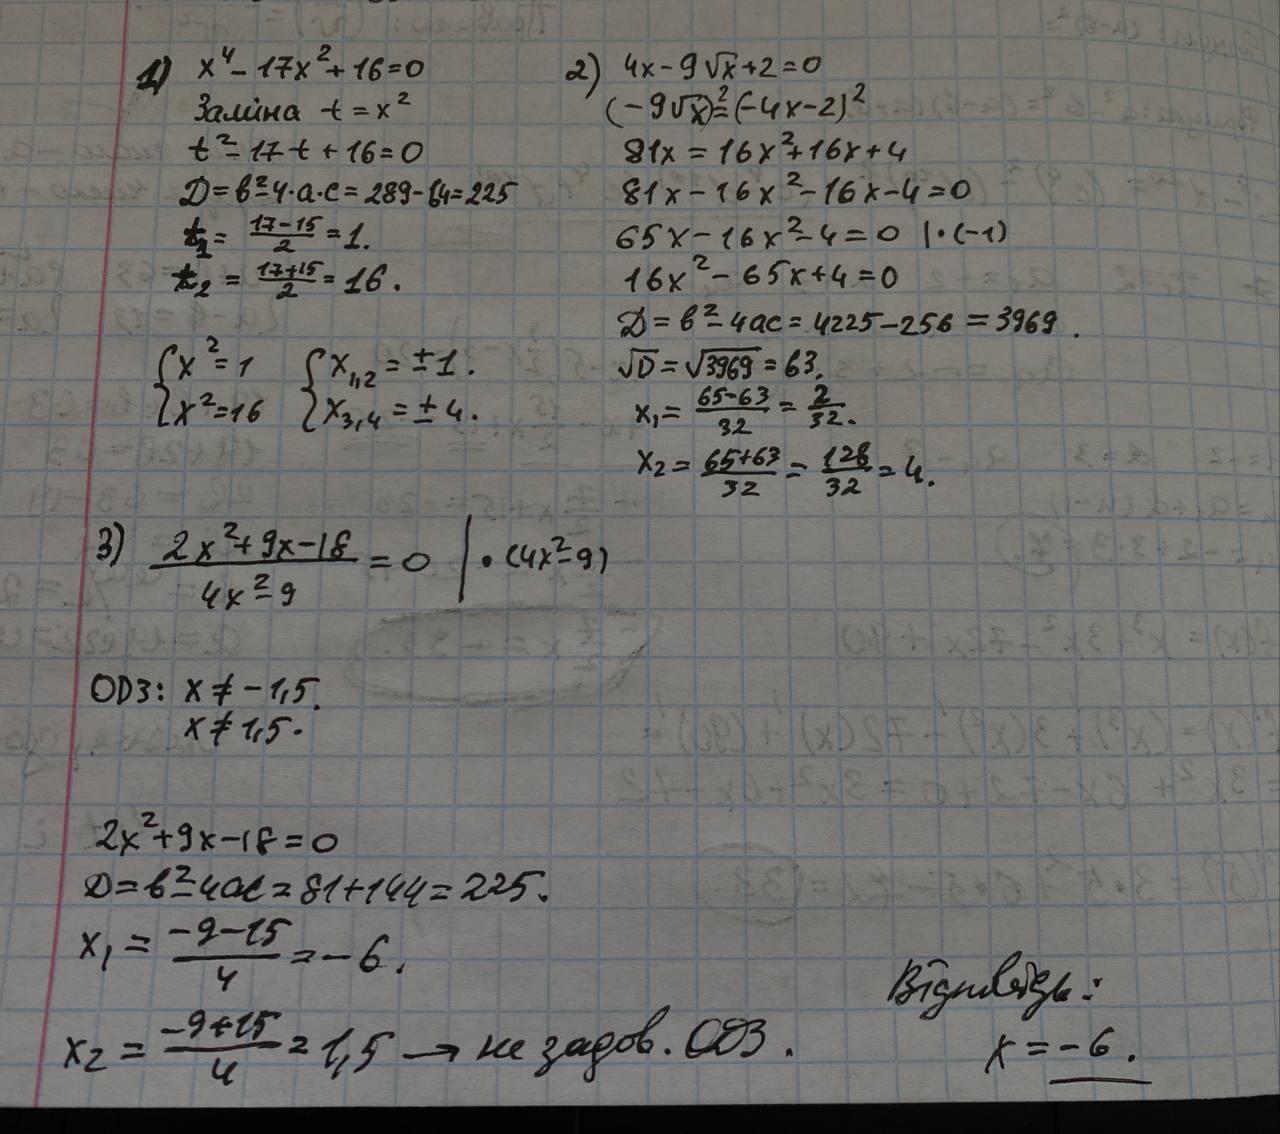 1) x⁴ - 17x² + 16 = 0
Заміна t = x²
t² - 17t + 16 = 0
D = b² - 4·a·c = 289 - 64 = 225
t₁ = (17-15)/2 = 1.
t₂ = (17+15)/2 = 16.
{x² = 1
{x² = 16
{x₁,₂ = ±1.
{x₃,₄ = ±4.
2) 4x - 9√x + 2 = 0
(-9√x)² = (-4x-2)²
81x = 16x² + 16x + 4
81x - 16x² - 16x - 4 = 0
65x - 16x² - 4 = 0 |·(-1)
16x² - 65x + 4 = 0
D = b² - 4ac = 4225 - 256 = 3969.
√D = √3969 = 63.
x₁ = (65-63)/32 = 2/32.
x₂ = (65+63)/32 = 128/32 = 4.
3) (2x² + 9x - 18)/(4x² - 9) = 0 | · (4x² - 9)
ОДЗ: x ≠ -1,5.
x ≠ 1,5.
2x² + 9x - 18 = 0
D = b² - 4ac = 81 + 144 = 225.
x₁ = (-9-15)/4 = -6.
x₂ = (-9+15)/4 = 1,5 → не задов. ОДЗ.
Відповідь:
x = -6.